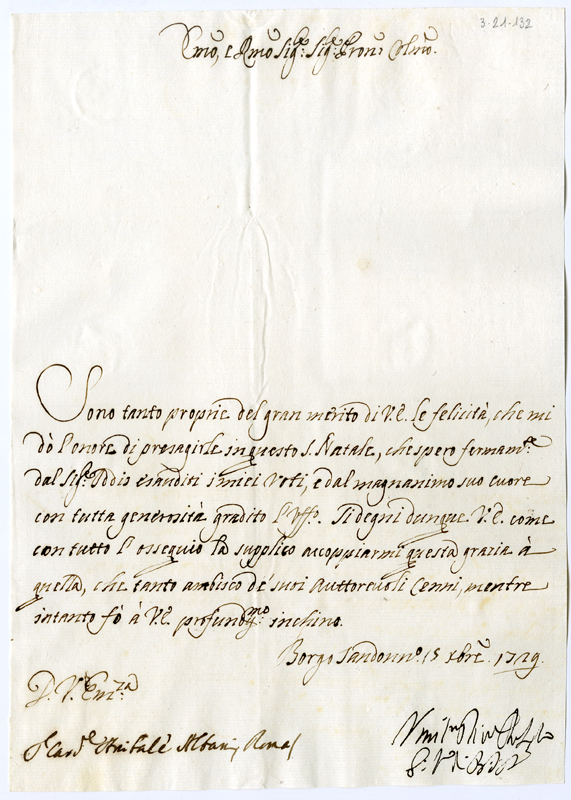 3-21-132
Emõ, e Rmõ Sig.r Sig.r Pron. Colmõ.
Sono tanto proprie del gran merito di V.E. le felicità, che mi
dò l'onore di presagirle in questo S. Natale, che spero fermam.te
dal Sig.r Iddio esauditi i miei Voti, e dal magnanimo suo cuore
con tutta generosità gradito l'Uff.o. Si degni dunque V.E. come
con tutto l'ossequio la supplico accoppiarmi questa grazia à
quella, che tanto ambisco de' suoi Auttorevoli Cenni, mentre
intanto fò à V.E. profund.mo inchino.
Borgo Sandonn.o 15 Xbre. 1729.
D. V. Em.za
S.r Card.e Annibale Albani, Roma